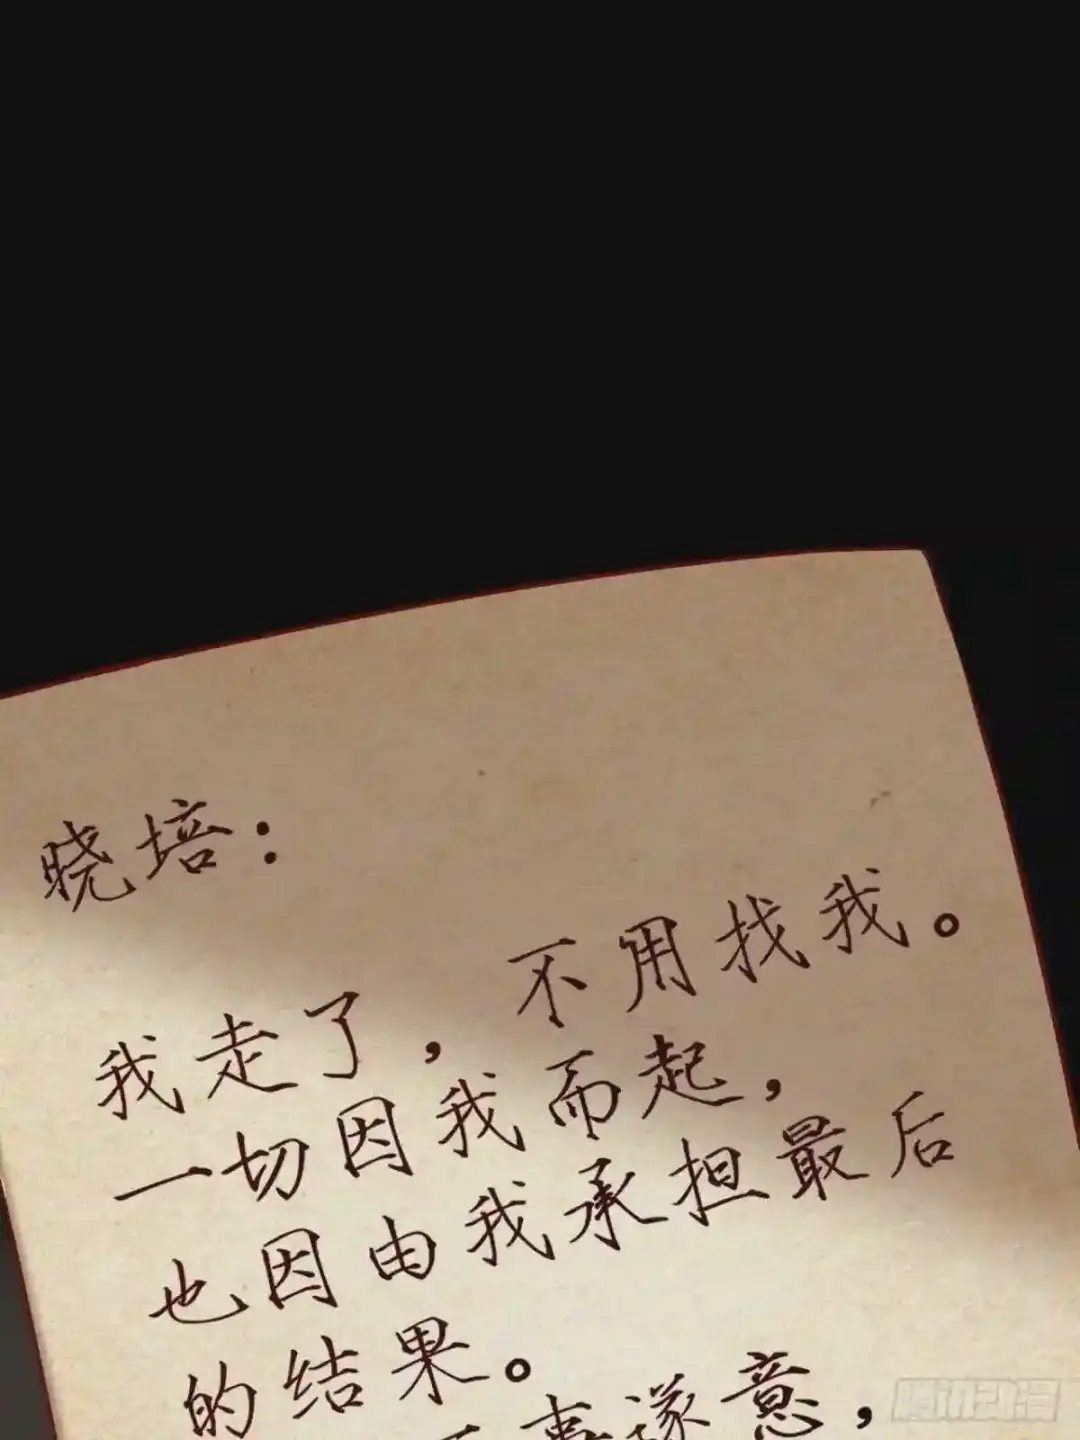 晓培：
我走了，不用找我。
一切因我而起，
也因由我承担最后
的结果。
事遂意，
腾讯动漫